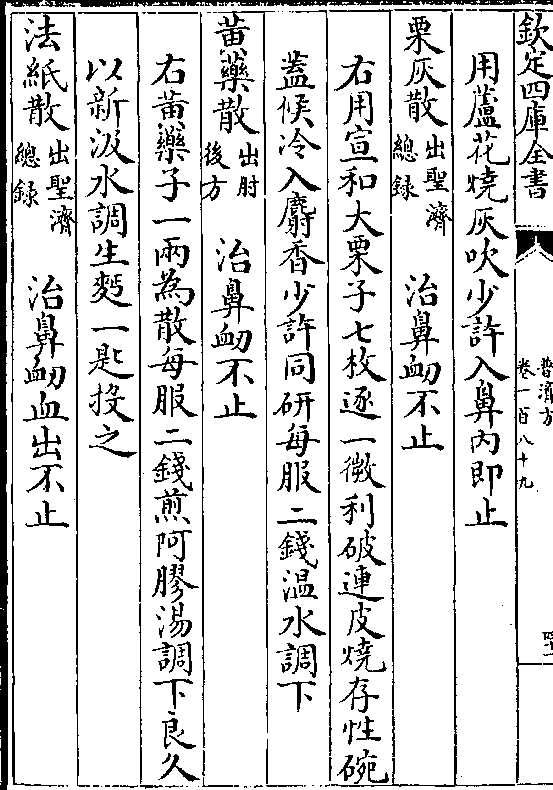 欽定四庫全書
普濟方
卷一百八十九
用蘆花燒灰吹少許入鼻内即止
栗灰散出聖濟總録 治鼻衄不止
右用宣和大栗子七枚逐一微利破連皮燒存性碗
蓋候冷入麝香少許同研每服二錢温水調下
黄藥散出肘後方 治鼻衄不止
右黄藥子一兩為散每服二錢煎阿膠湯調下良久
以新汲水調生麪一匙投之
法紙散出聖濟總録 治鼻衄血出不止